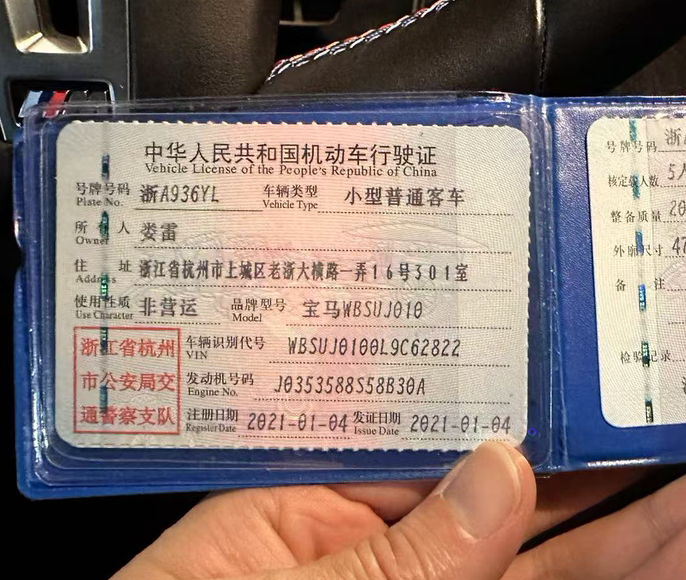 中华人民共和国机动车行驶证
Vehicle License of the People's Republic of China
号牌号码 浙A936YL 车辆类型 小型普通客车
Plate No. Vehicle Type
所有人 娄雷
Owner
住址 浙江省杭州市上城区老浙大横路一弄16号301室
Address
使用性质 非营运 品牌型号 宝马WBSUJ010
Use Character Model
浙江省杭州
市公安局交
通警察支队
车辆识别代号 WBSUJ0100L9C62822
VIN
发动机号码 J0353588S58B30A
Engine No.
注册日期 2021-01-04 发证日期 2021-01-04
Register Date Issue Date
号牌号码 浙
核定载人数 5人
整备质量 20
外廓尺寸 47
备注
检验记录